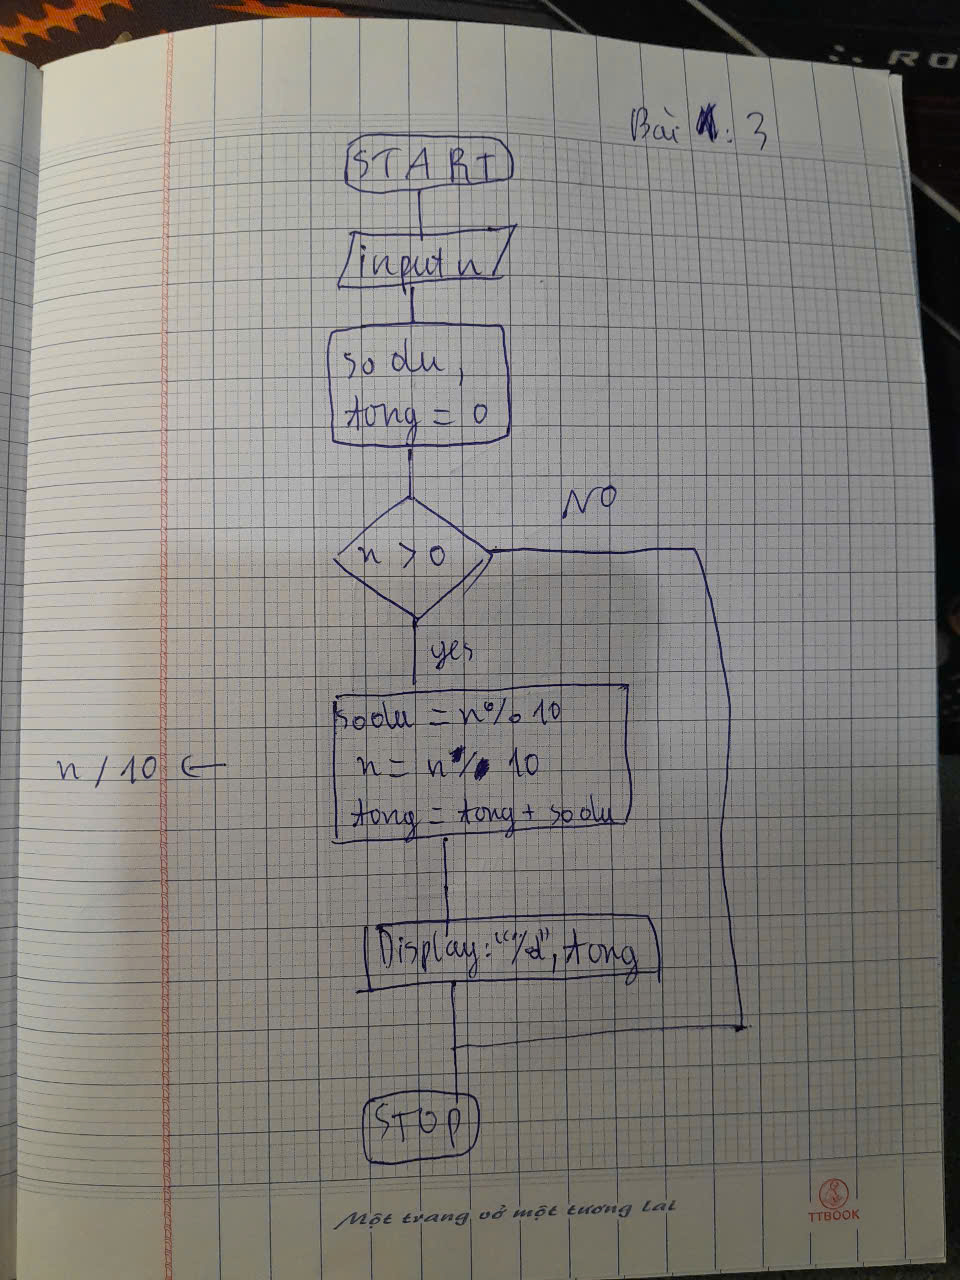 RO
Bài : 3
START
input n
so du,
tong = 0
n > 0
NO
yes
so du = n % 10
n / 10 ←
n = n % 10
tong = tong + so du
Display: "%d", tong
STOP
Một trang vở một tương lai
TTBOOK